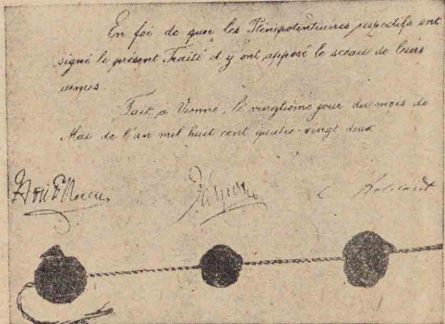 En foi de quoi les Plénipotentiaires respectifs ont
signé le présent Traité et y ont apposé le sceau de leurs
armes.
Fait à Vienne, le vingtième jour du mois de
Mai de l'an mil huit cent quatre-vingt deux